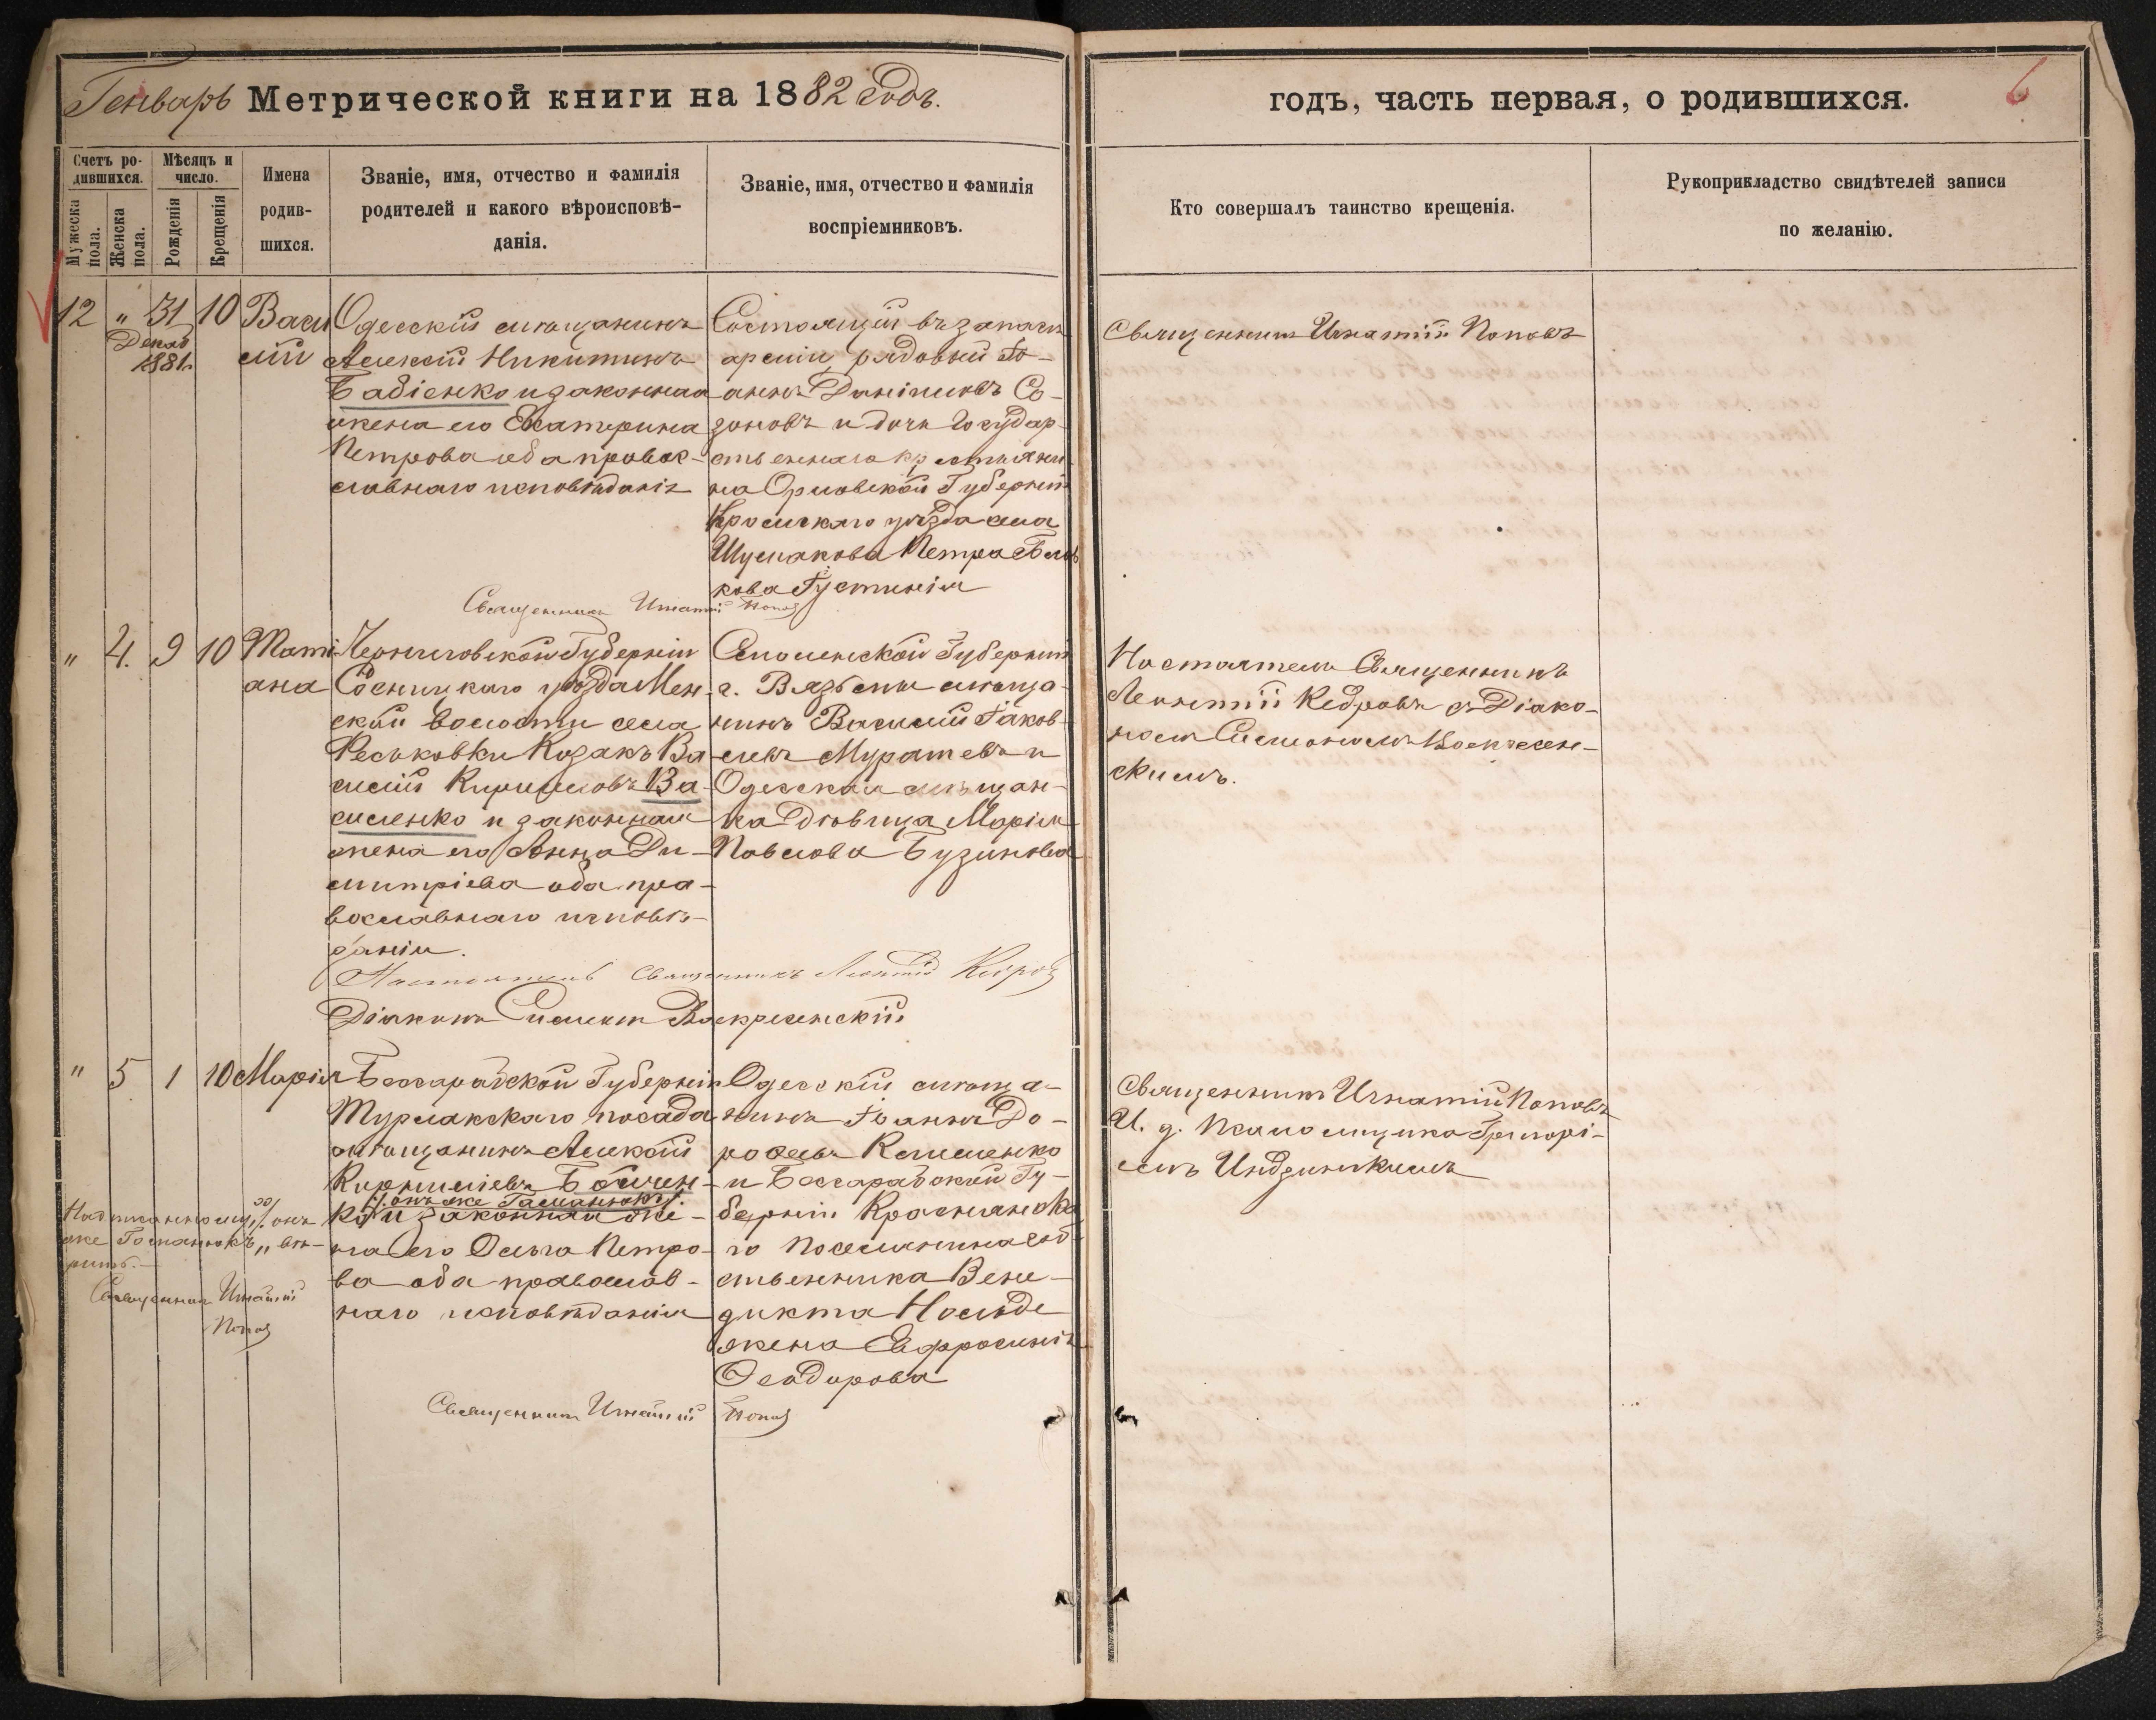 Генварь Метрической книги на 1882 Годъ.
годъ, часть первая, о родившихся.
6
Счетъ ро-
дившихся.
Мужеска пола.
Женска пола.
Мѣсяцъ и
число.
Рожденія
Крещенія
Имена
родив-
шихся.
Званіе, имя, отчество и фамилія
родителей и какого вѣроисповѣ-
данія.
Званіе, имя, отчество и фамилія
воспріемниковъ.
Кто совершалъ таинство крещенія.
Рукоприкладство свидѣтелей записи
по желанію.
12 " 31 10
Декаб
1881.
Васи
лій
Одесскій мѣщанинъ
Алексій Никитинъ
Бабіенко и законная
жена его Екатерина
Петрова оба правос-
лавнаго исповѣданія
Состоящій въ запасѣ
арміи, рядовый Іо-
аннъ Даніиловъ Со-
зоновъ и дочь Государ-
ственнаго крестьяни
на Орловской Губерніи
Кромскаго уѣзда села
Шумакова Петра Бѣль
кова Іустинія
Священникъ Игнатій Поповъ
Священникъ Игнатій Поповъ
" 4. 9 10
Таті
ана
Черниговской Губерніи
Сосницкаго уѣзда Мен-
ской волости села
Феськовки Козакъ Ва
силій Кирилловъ Ва-
силенко и законная
жена его Анна Ди-
митріева оба пра-
вославнаго исповѣ-
данія.
Смоленской Губерніи
г. Вязьмы мѣща-
нинъ Василій Іаков-
левъ Муратевъ и
Одесская мѣщан-
ка Дѣвица Марія
Павлова Бузинова
Настоятель Священникъ
Леонтій Кедровъ съ Діако-
номъ Симеономъ Воскресен-
скимъ.
Настоятель Священникъ Леонтій Кедровъ
Діаконъ Симеонъ Воскресенскій
" 5 1 10
Марія
Бессарабской Губерніи
Турлакскаго посада
мѣщанинъ Алексій
Корниліевъ Бойчен-
/:онъ же Гаманюкъ:/
ко и законная же-
на его Ольга Петро-
ва оба православ-
наго исповѣданія
Одесскій мѣща-
нинъ Іоаннъ До-
роѳеевъ Клименко
и Бессарабской Гу-
берніи Краснянска
го поселянина соб
ственника Вене-
дикта Носъде
жена Евфросинія
Ѳеодорова
Священникъ Игнатій Поповъ
И. д. Псаломщика Григорі-
емъ Индзинскимъ
Надписанному /:онъ
же Гаманюкъ„ вѣ-
рить.
Священникъ Игнатій
Поповъ
Священникъ Игнатій Поповъ